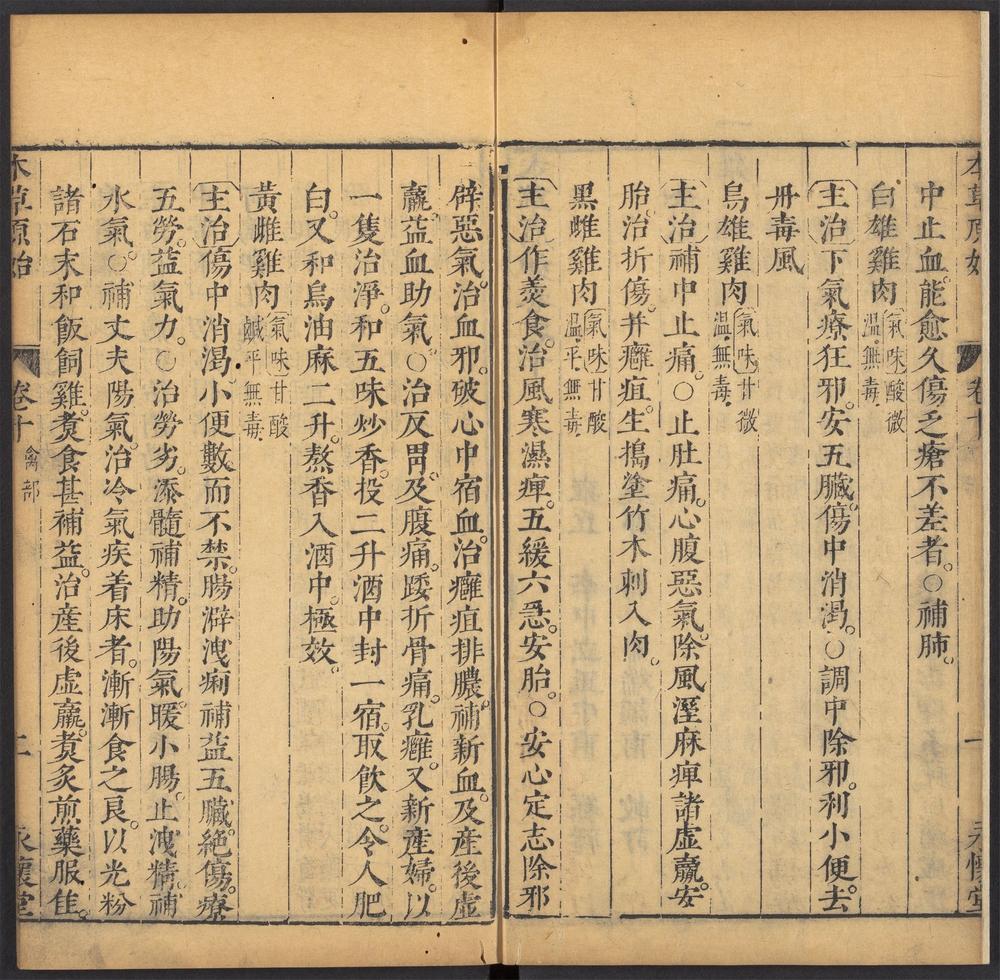 本草原始
卷十
一
永懷堂
中止血。能愈久傷乏瘡不差者。〇補肺。
白雄雞肉
氣味酸微
温。無毒。
主治下氣療狂邪。安五臟。傷中消渴。〇調中除邪。利小便。去
丹毒風
烏雄雞肉
氣味甘微
温。無毒。
主治補中止痛。〇止肚痛。心腹惡氣。除風溼麻痺諸虛羸。安
胎。治折傷。并癰疽生搗塗竹木刺入肉。
黑雌雞肉
氣味甘酸
温。平。無毒。
主治作羹食。治風寒濕痺。五緩六急。安胎。〇安心定志除邪
辟惡氣。治血邪。破心中宿血。治癰疽排膿。補新血。及產後虛
羸。益血助氣。〇治反胃。及腹痛。踒折骨痛。乳癰。又新產婦。以
一隻治淨。和五味炒香。投二升酒中封一宿。取飲之。令人肥
白。又和烏油麻二升。熬香入酒中。極效。
黃雌雞肉
氣味甘酸
鹹平無毒。
主治傷中消渴。小便數而不禁。腸澼洩痢補益五臟。絕傷。療
五勞。益氣力。〇治勞劣。添髓補精。助陽氣。暖小腸。止洩精。補
水氣。〇補丈夫陽氣。治冷氣疾着床者。漸漸食之良。以光粉
諸石末和飯飼雞。煑食甚補益。治產後虛羸。煑炙煎藥服佳。
本草原始
卷十
禽部
二
永懷堂